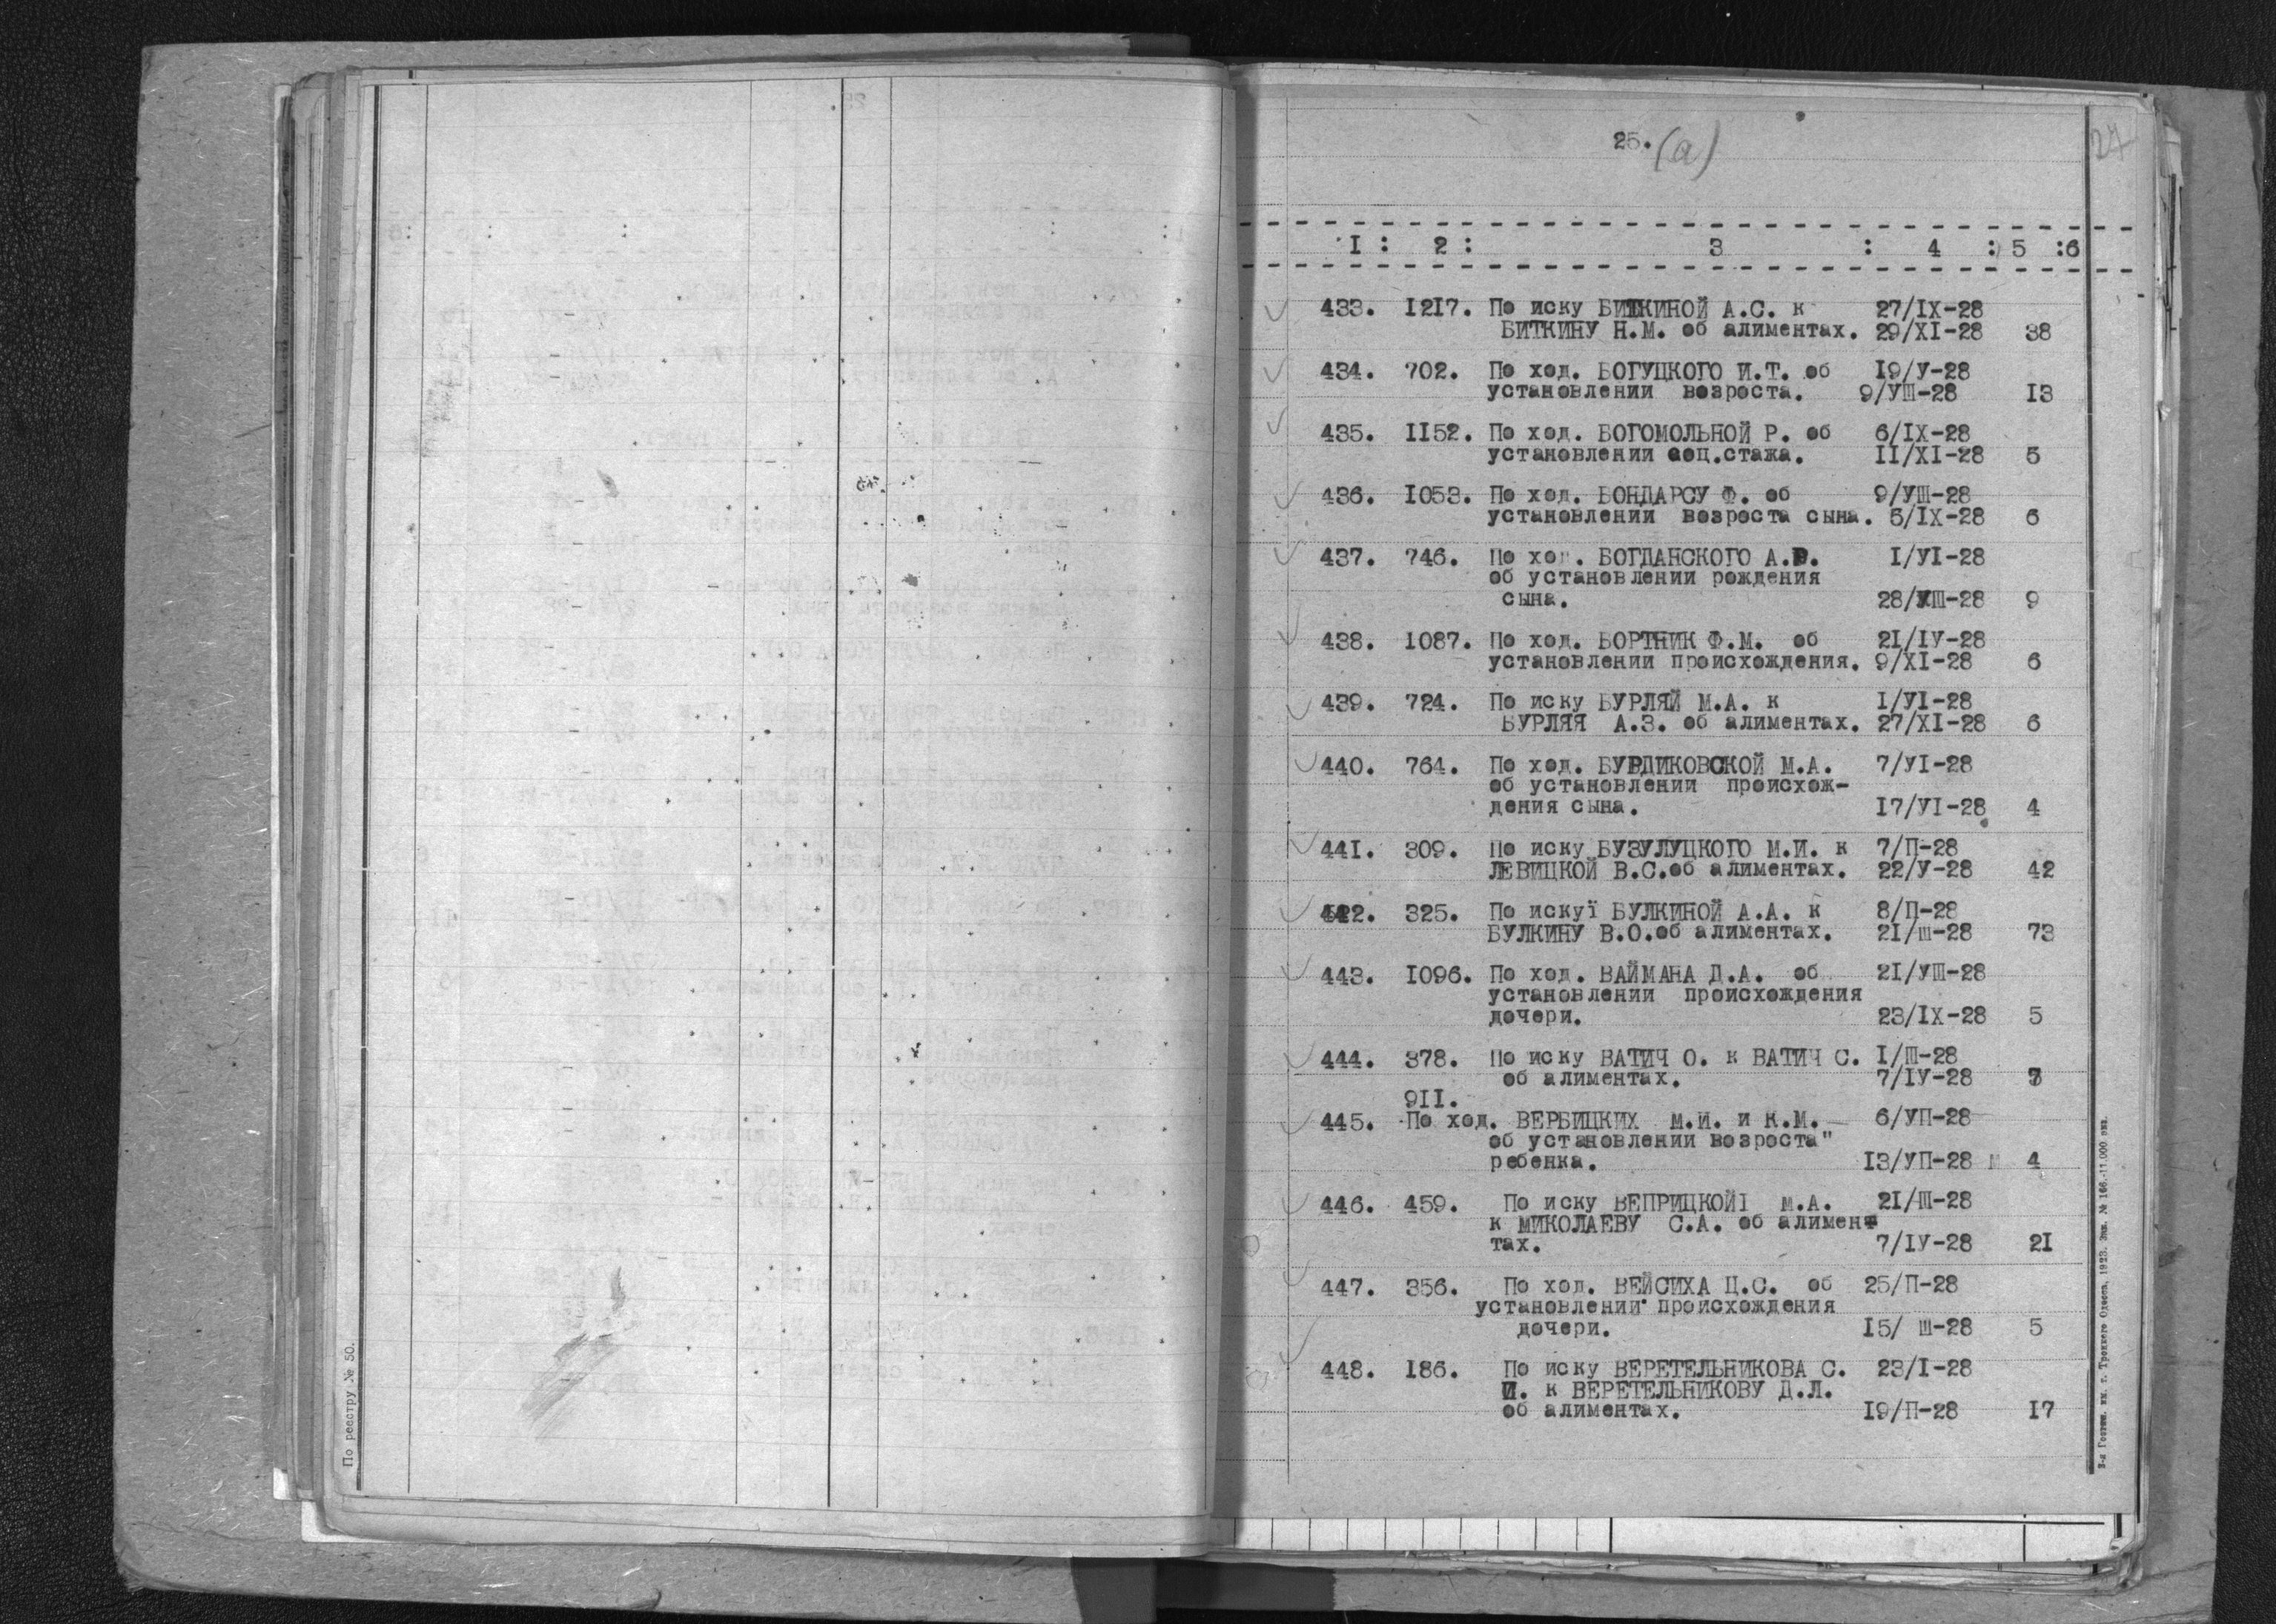 По реестру № 50.
25. (а)
27
1 : 2 : 3 : 4 : 5 : 6
433. 1217. По иску БИТКИНОЙ А.С. к 27/IX-28
БИТКИНУ Н.М. об алиментах. 29/XI-28 38
434. 702. По ход. БОГУЦКОГО И.Т. об 19/У-28
установлении возроста. 9/УШ-28 13
435. 1152. По ход. БОГОМОЛЬНОЙ Р. об 6/IX-28
установлении соц.стажа. 11/XI-28 5
436. 1053. По ход. БОНДАРСУ Ф. об 9/УШ-28
установлении возроста сына. 5/IX-28 6
437. 746. По ход. БОГДАНСКОГО А.Р. 1/УI-28
об установлении рождения
сына. 28/УШ-28 9
438. 1087. По ход. БОРТНИК Ф.М. об 21/IУ-28
установлении происхождения. 9/XI-28 6
439. 724. По иску БУРЛЯЙ М.А. к 1/УI-28
БУРЛЯЯ А.З. об алиментах. 27/XI-28 6
440. 764. По ход. БУРДИКОВСКОЙ М.А. 7/УI-28
об установлении происхож-
дения сына. 17/УI-28 4
441. 309. По иску БУЗУЛУЦКОГО М.И. к 7/П-28
ЛЕВИЦКОЙ В.С.об алиментах. 22/У-28 42
442. 325. По искуї БУЛКИНОЙ А.А. к 8/П-28
БУЛКИНУ В.О.об алиментах. 21/Ш-28 73
443. 1096. По ход. ВАЙМАНА Д.А. об 21/УШ-28
установлении происхождения
дочери. 23/IX-28 5
444. 378. По иску ВАТИЧ О. к ВАТИЧ С. 1/Ш-28
об алиментах. 7/IУ-28 7
911.
445. По ход. ВЕРБИЦКИХ М.И. и К.М. 6/УП-28
об установлении возроста"
ребенка. 13/УП-28 4
446. 459. По иску ВЕПРИЦКОЙ1 М.А. 21/Ш-28
к МИКОЛАЕВУ С.А. об алимент
тах. 7/IУ-28 21
447. 356. По ход. ВЕЙСИХА Ц.С. об 25/П-28
установлении происхождения
дочери. 15/ Ш-28 5
448. 186. По иску ВЕРЕТЕЛЬНИКОВА С. 23/I-28
И. к ВЕРЕТЕЛЬНИКОВУ Д.Л.
об алиментах. 19/П-28 17
3-я Гостип. им. т. Троцкого Одесса. 1923. Зак. № 166.-11.000 экз.